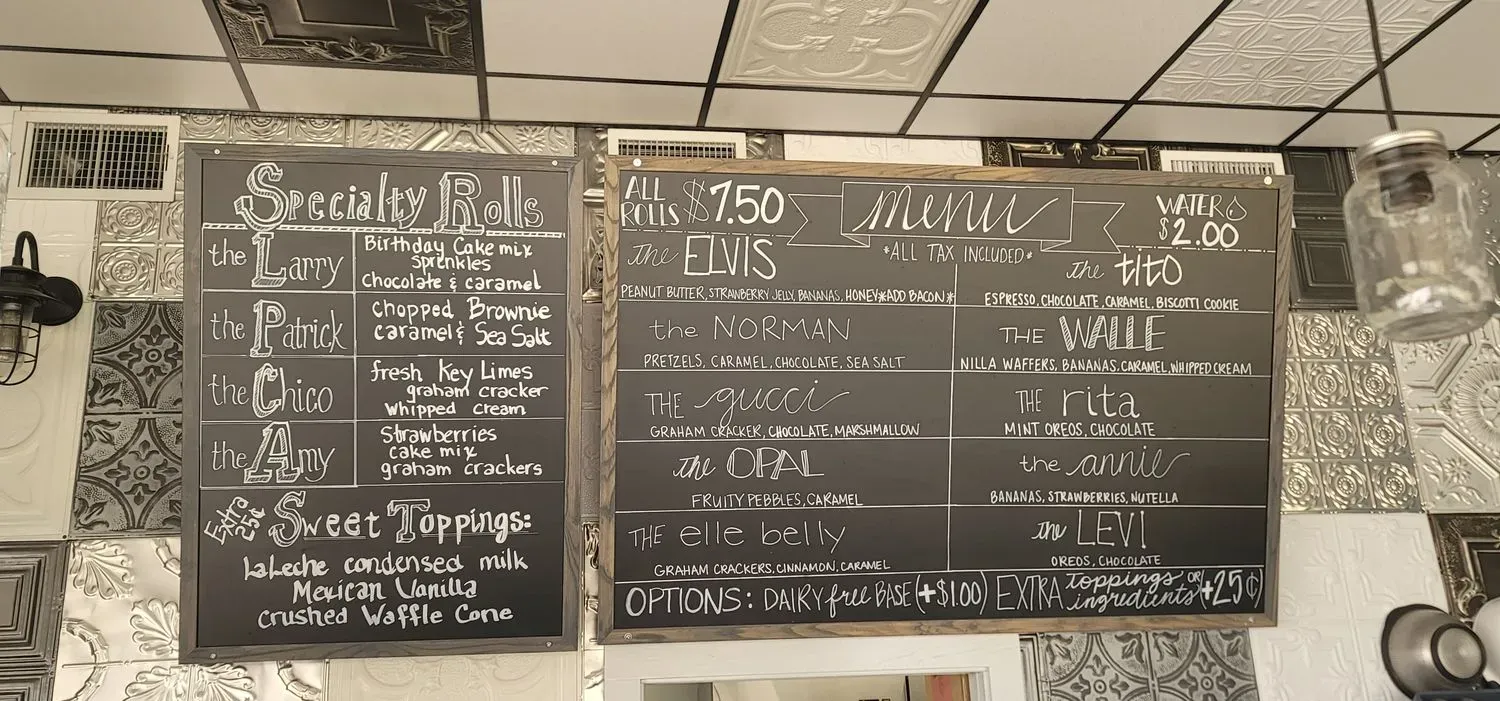 Specialty Rolls
the Larry
Birthday Cake mix
sprenkles
chocolate & caramel
the Patrick
Chopped Brownie
caramel & Sea Salt
the Chico
fresh Key Limes
graham cracker
whipped cream
the Amy
Strawberries
cake mix
graham crackers
Extra 25¢
Sweet Toppings:
LaLeche condensed milk
Mexican Vanilla
crushed Waffle Cone
ALL ROLLS $7.50
menu
WATER
$2.00
*ALL TAX INCLUDED*
The ELVIS
PEANUT BUTTER, STRAWBERRY JELLY, BANANAS, HONEY *ADD BACON*
the NORMAN
PRETZELS, CARAMEL, CHOCOLATE, SEA SALT
THE gucci
GRAHAM CRACKER, CHOCOLATE, MARSHMALLOW
the OPAL
FRUITY PEBBLES, CARAMEL
THE elle belly
GRAHAM CRACKERS, CINNAMON, CARAMEL
The tito
ESPRESSO, CHOCOLATE, CARAMEL, BISCOTTI COOKIE
THE WALLE
NILLA WAFFERS, BANANAS, CARAMEL, WHIPPED CREAM
THE rita
MINT OREOS, CHOCOLATE
the annie
BANANAS, STRAWBERRIES, NUTELLA
The LEVI
OREOS, CHOCOLATE
OPTIONS: DAIRY free BASE (+$1.00) EXTRA toppings or ingredients (+25¢)